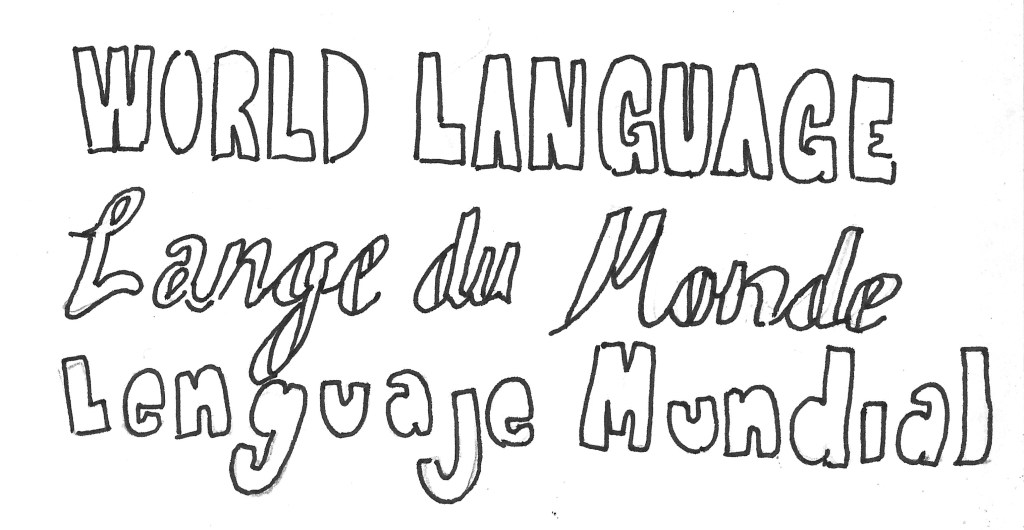 WORLD LANGUAGE
Lange du Monde
Lenguaje Mundial